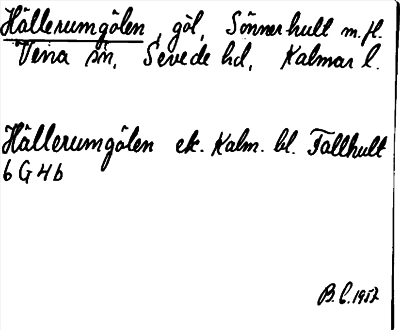 Hällerumgölen, göl, Sönnerhult m.fl.
Vena sn, Sevede hd, Kalmar l.
Hällerumgölen ek. Kalm. bl. Tallhult
6 G 4 b
B.C. 1957